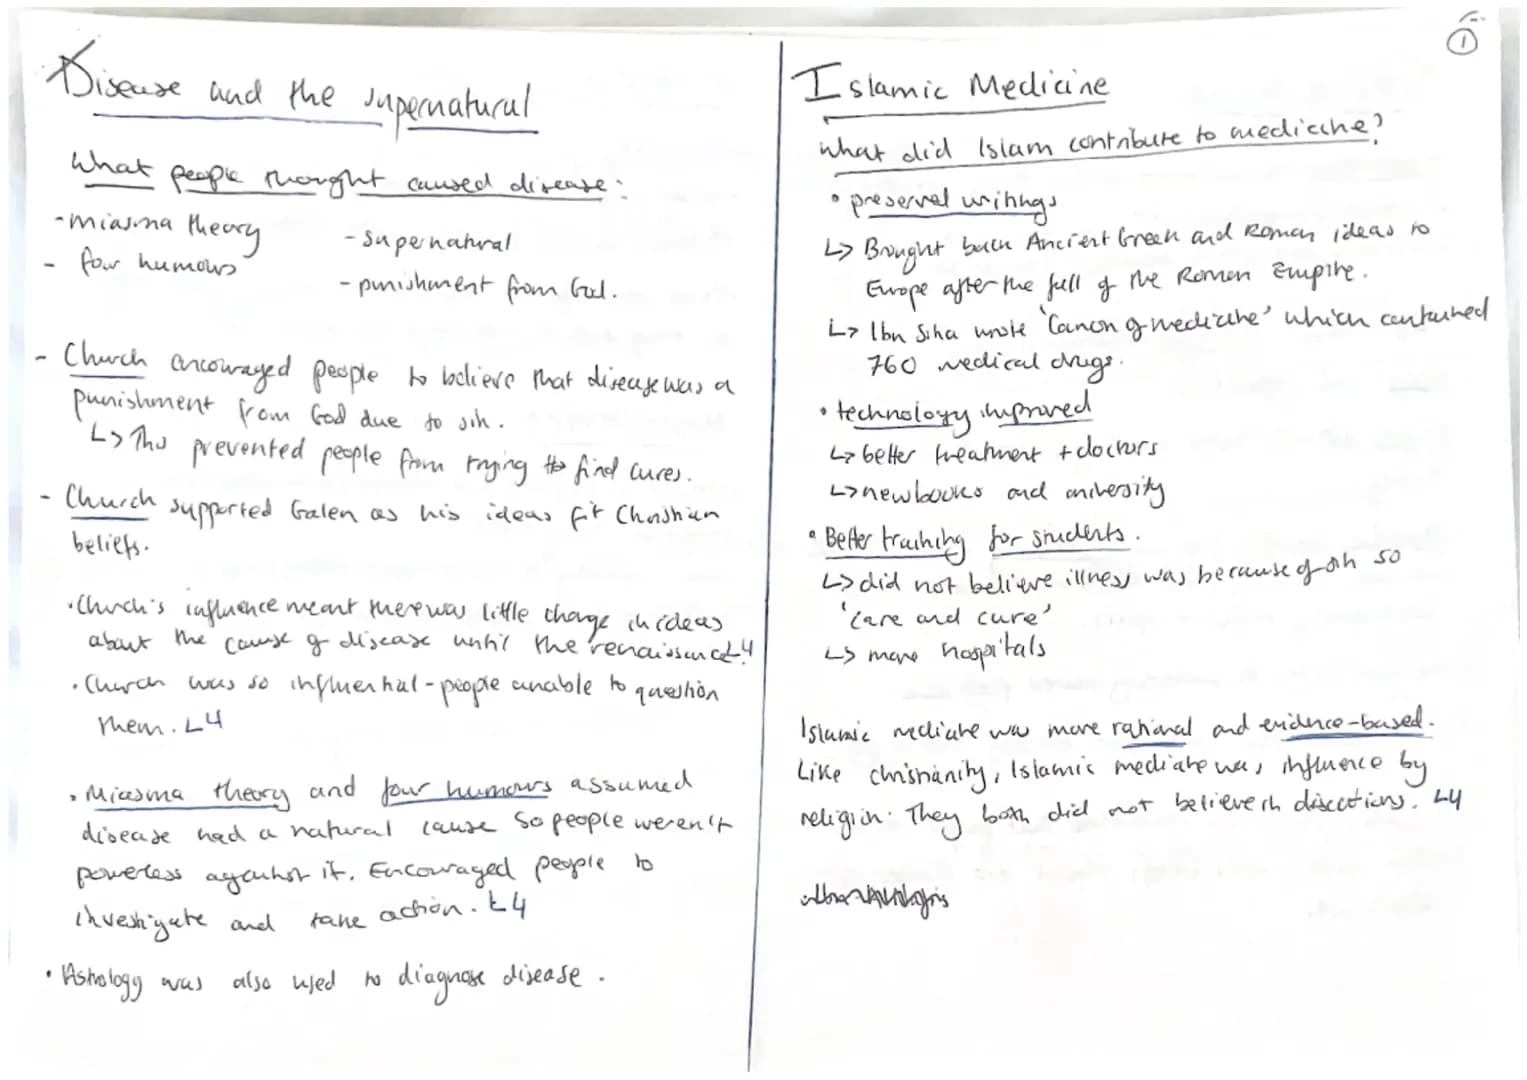 Disease and the supernatural
What people thought caused disease:
- miasma theory
- four humours
- supernatural
- punishment from God.
- Church encouraged people to believe that disease was a
punishment from God due to sin.
↳ This prevented people from trying to find cures.
- Church supported Galen as his ideas fit Christian
beliefs.
• Church's influence meant there was little change in ideas
about the cause of disease until the renaissance. L4
• Church was so influenhal - people unable to question
them. L4
• Miasma theory and four humours assumed
disease had a natural cause so people weren't
powerless against it. Encouraged people to
investigate and take action. L4
• Astrology was also used to diagnose disease.
①
Islamic Medicine
What did Islam contribute to medicine?
• preserved writings
↳ Brought back Ancient Greek and Roman ideas to
Europe after the fall of the Roman Empire.
↳ Ibn Sina wrote 'Canon of medicine' which contained
760 medical drugs.
• technology improved
↳ better treatment + doctors
↳ new books and university
• Better training for students.
↳ did not believe illness was because of sin so
'care and cure'
↳ more hospitals
Islamic medicine was more rational and evidence-based.
Like christianity, Islamic medicine was influence by
religion. They both did not believe in disections. L4